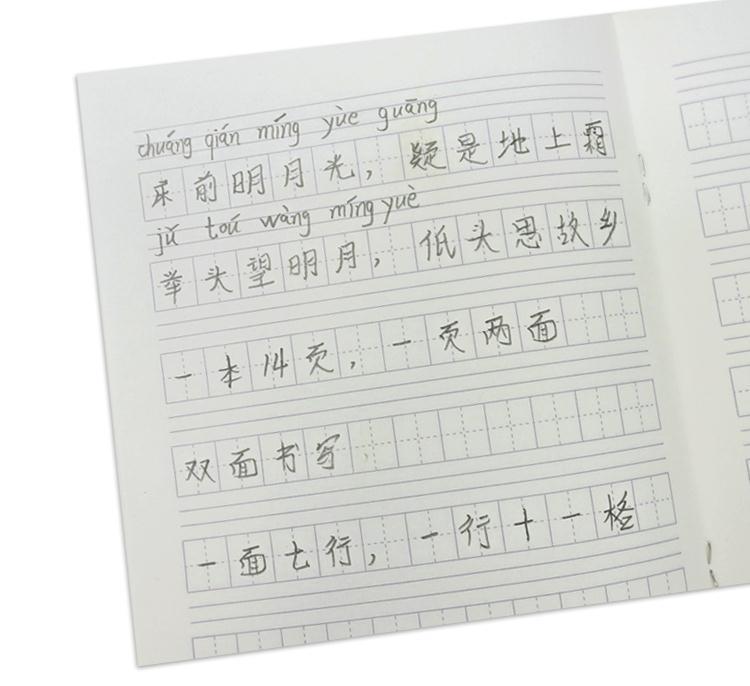 chuáng qián míng yuè guāng
床前明月光，疑是地上霜
jǔ toú wàng míng yuè
举头望明月，低头思故乡
一本14页，一页两面
双面书写
一面七行，一行十一格